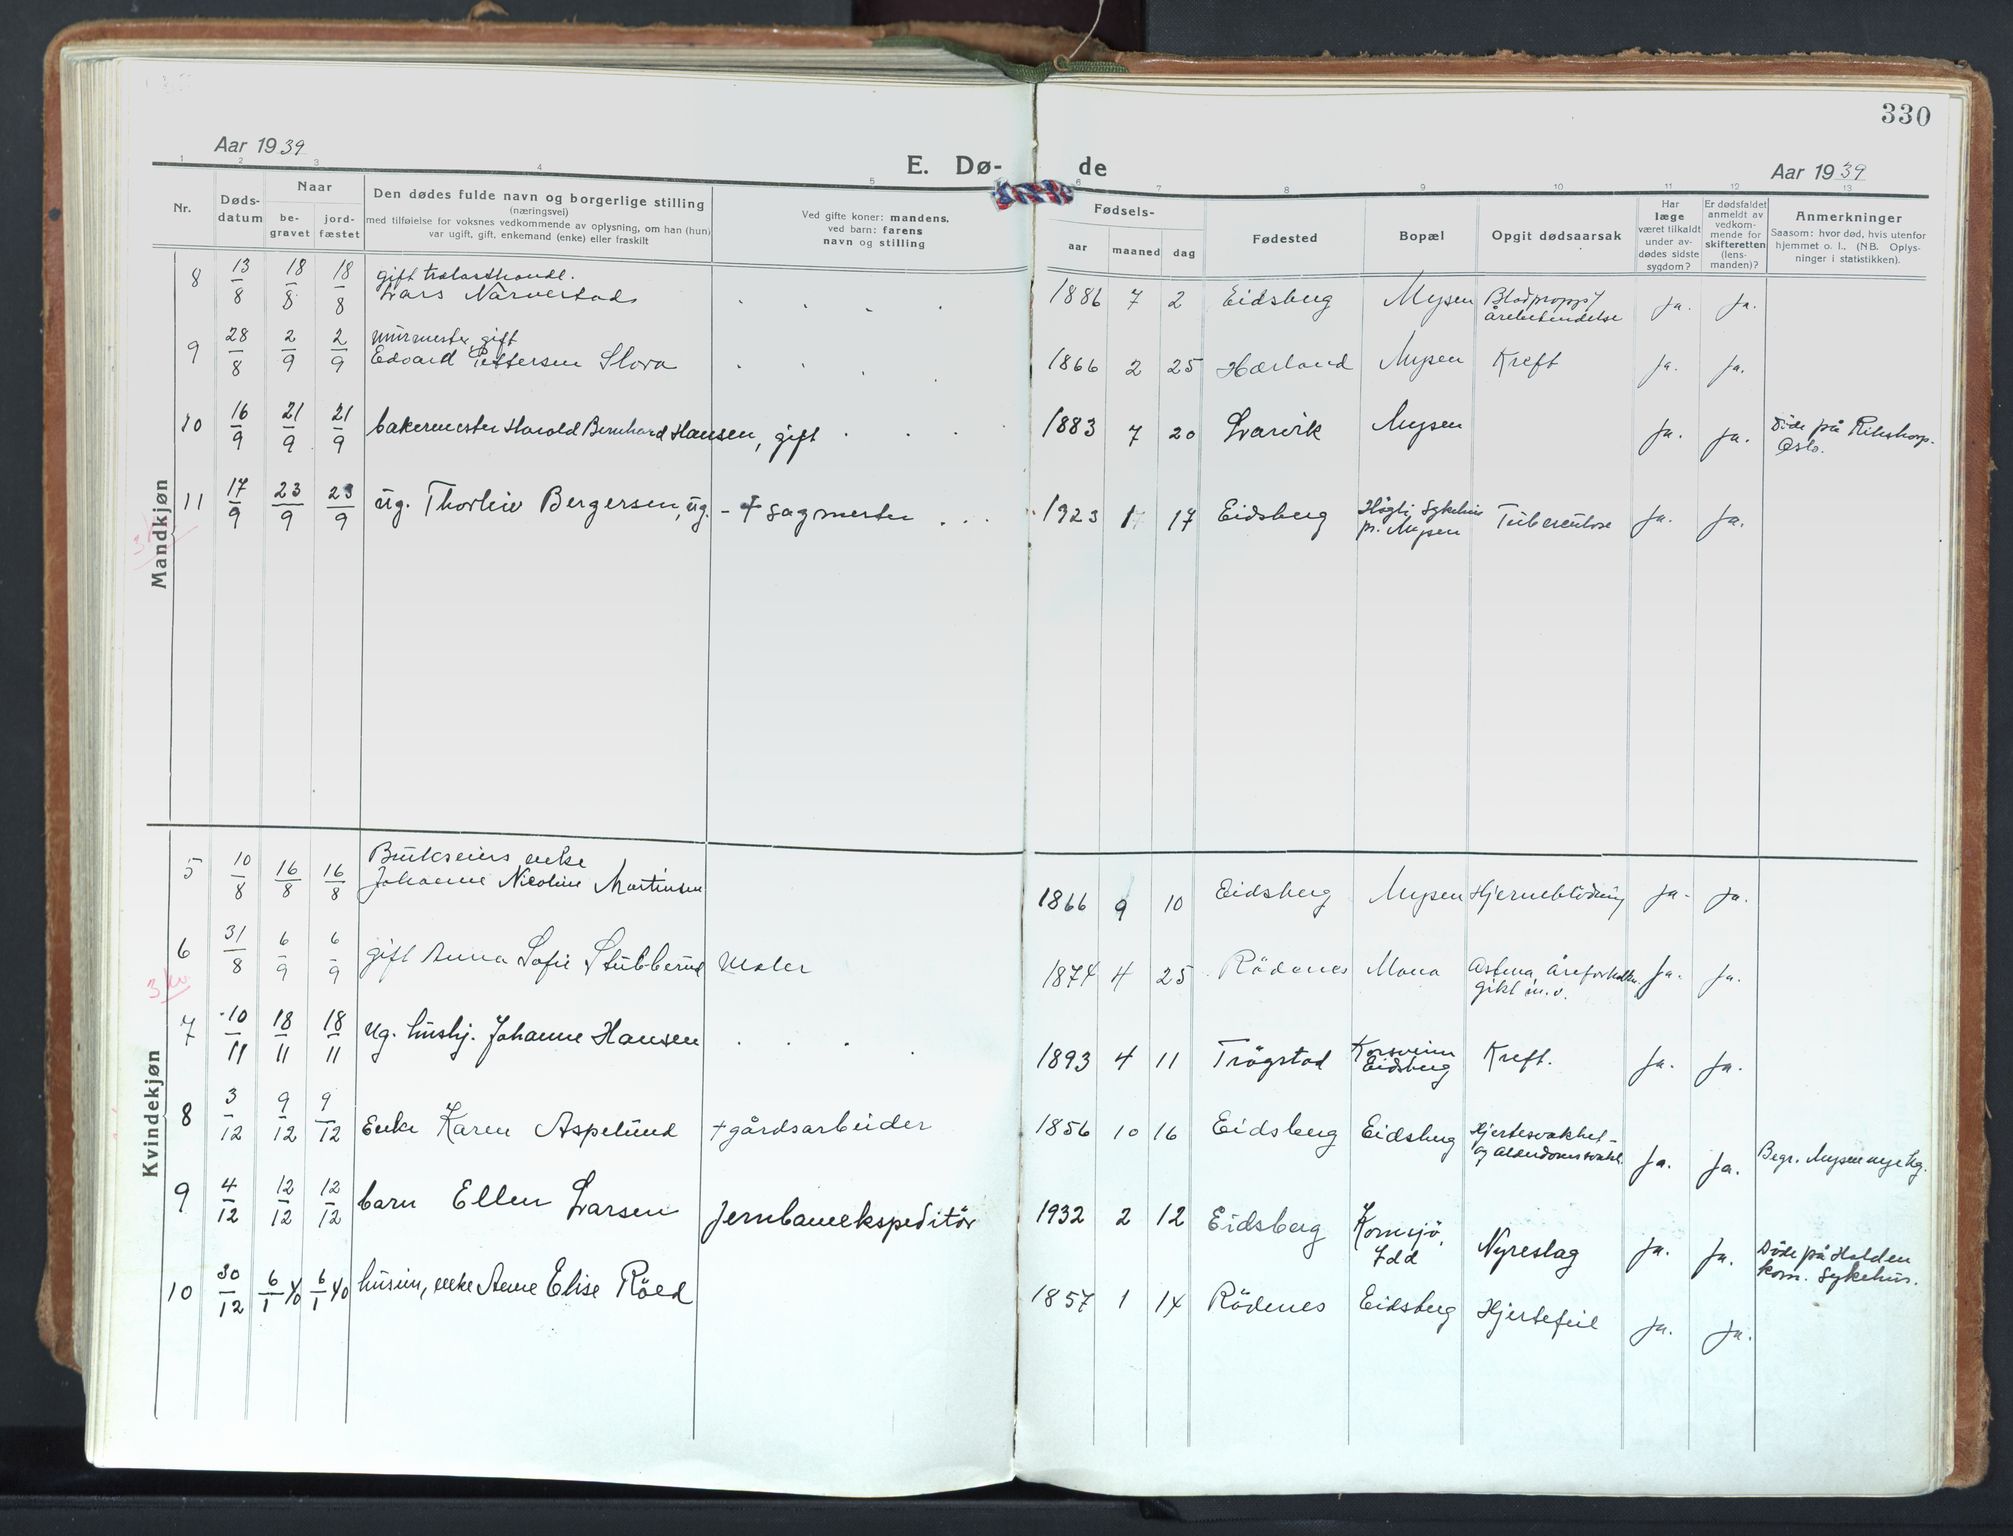 330
Aar 1939
E. Dø-
de
Aar 1939
1 2 3 4 5 6 7 8 9 10 11 12 13
Nr.
Døds-
datum
Naar
be-
gravet
jord-
fæstet
Den dødes fulde navn og borgerlige stilling
(næringsvei)
med tilføielse for voksnes vedkommende av oplysning, om han (hun)
var ugift, gift, enkemand (enke) eller fraskilt
Ved gifte koner: mandens,
ved barn: farens
navn og stilling
Fødsels-
aar maaned dag
Fødested
Bopæl
Opgit dødsaarsak
Har
læge
været tilkaldt
under av-
dødes sidste
sygdom?
Er dødsfaldet
anmeldt av
vedkom-
mende for
skifteretten
(lens-
manden)?
Anmerkninger
Saasom: hvor død, hvis utenfor
hjemmet o. l., (NB. Oplys-
ninger i statistikken).
Mandkjøn
8 13/8 18/8 18/8 gift trælasthandl.
Lars Narvestad 1886 7 2 Eidsberg Mysen Blodpropp
Årebetendelse ja. ja.
9 28/8 2/9 2/9 murmester, gift
Edvard Pettersen Slora 1866 2 25 Hærland Mysen Kreft ja. ja.
10 16/9 21/9 21/9 bakermester Harald Bernhard Hansen, gift 1883 7 20 Larvik Mysen ja. ja. Døde på Rikshosp.
Oslo.
11 17/9 23/9 23/9 ug. Thorleiv Bergersen, ug. - + sagmester 1923 1 17 Eidsberg Høgli Sykehus
pr. Mysen Tuberculose ja. ja.
3
Kvindekjøn
5 10/8 16/8 16/8 Brukseiers enke
Johanne Nicoline Martinsen 1866 9 10 Eidsberg Mysen Hjerneblödning ja. ja.
6 31/8 6/9 6/9 gift Anna Sofie Stubberud Maler 1874 4 25 Rödenes Mona Astma, Åreforkalkn.
Gikt m.v. ja. ja.
3 kv
7 10/11 18/11 18/11 ug. hushj. Johanne Hansen 1893 4 11 Trögstad Korsveien
Eidsberg Kreft. ja. ja.
8 3/12 9/12 9/12 Enke Karen Aspelund + gårdsarbeider 1856 10 16 Eidsberg Eidsberg Hjertesvakhet-
og alderdomssvakh. ja. ja. Begr. Mysen nye kg.
9 4/12 12/12 12/12 barn Ellen Larsen Jernbaneekspeditör 1932 2 12 Eidsberg Kornsjö,
Idd Nyreslag ja. ja. Døde på Halden
kom. Sykehus.
10 30/12 6/1 40 6/1 40 husm. enke Anne Elise Röed 1857 1 14 Rödenes Eidsberg Hjertefeil ja. ja.